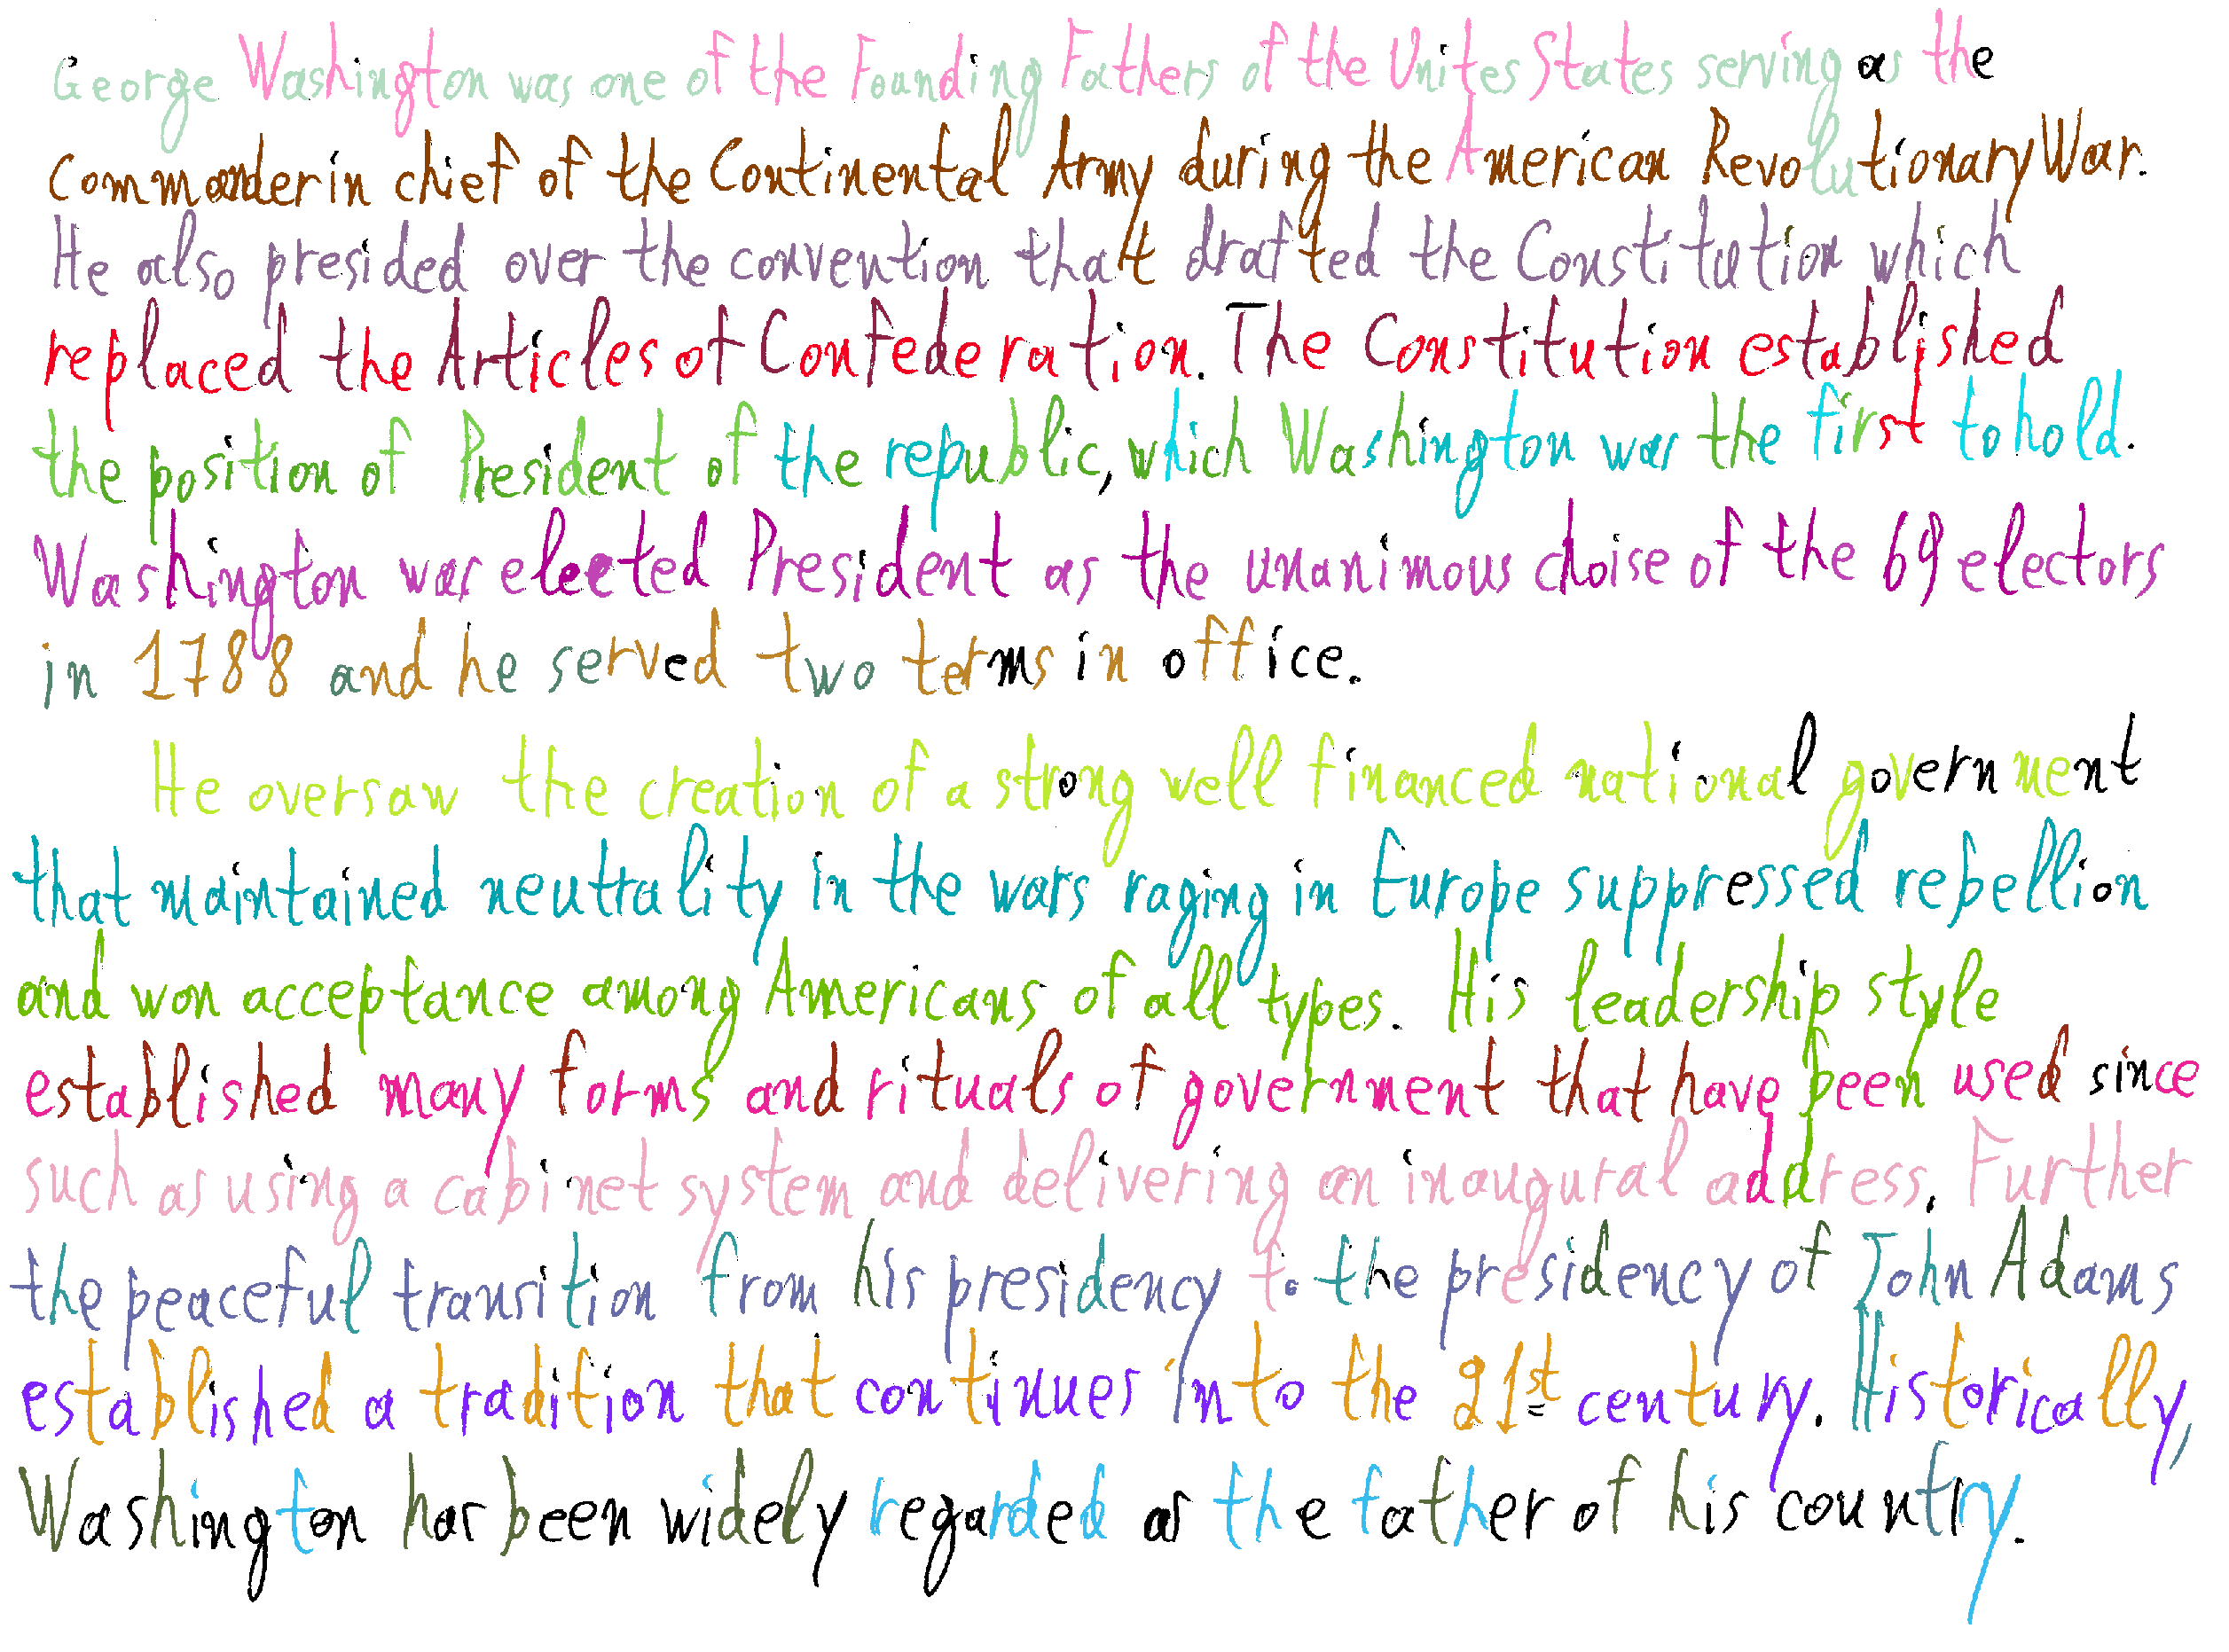 George Washington was one of the Founding Fathers of the Unites States serving as the
Commander in chief of the Continental Army during the American Revolutionary War.
He also presided over the convention that drafted the Constitution which
replaced the Articles of Confederation. The Constitution established
the position of President of the republic, which Washington was the first to hold.
Washington was elected President as the unanimous choise of the 69 electors
in 1788 and he served two terms in office.
He oversaw the creation of a strong well financed national government
that maintained neutrality in the wars raging in Europe suppressed rebellion
and won acceptance among Americans of all types. His leadership style
established many forms and rituals of government that have been used since
such as using a cabinet system and delivering an inaugural address. Further
the peaceful transition from his presidency to the presidency of John Adams
established a tradition that continues into the 21st century. Historically,
Washington has been widely regarded as the father of his country.